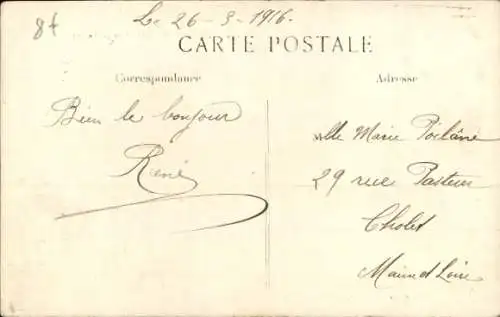 8f
Le 26-3-1916.
CARTE POSTALE
Correspondance
Adresse
Bien le bonjour
René
Mlle Marie Poilâne
29 rue Pasteur
Cholet
Maine et Loire